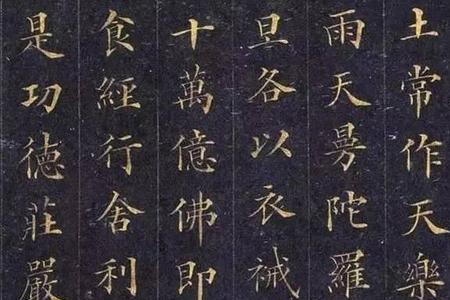 土常作天樂
雨天曼陀羅
旦各以衣裓
十萬億佛即
食經行舍利
是功德莊嚴